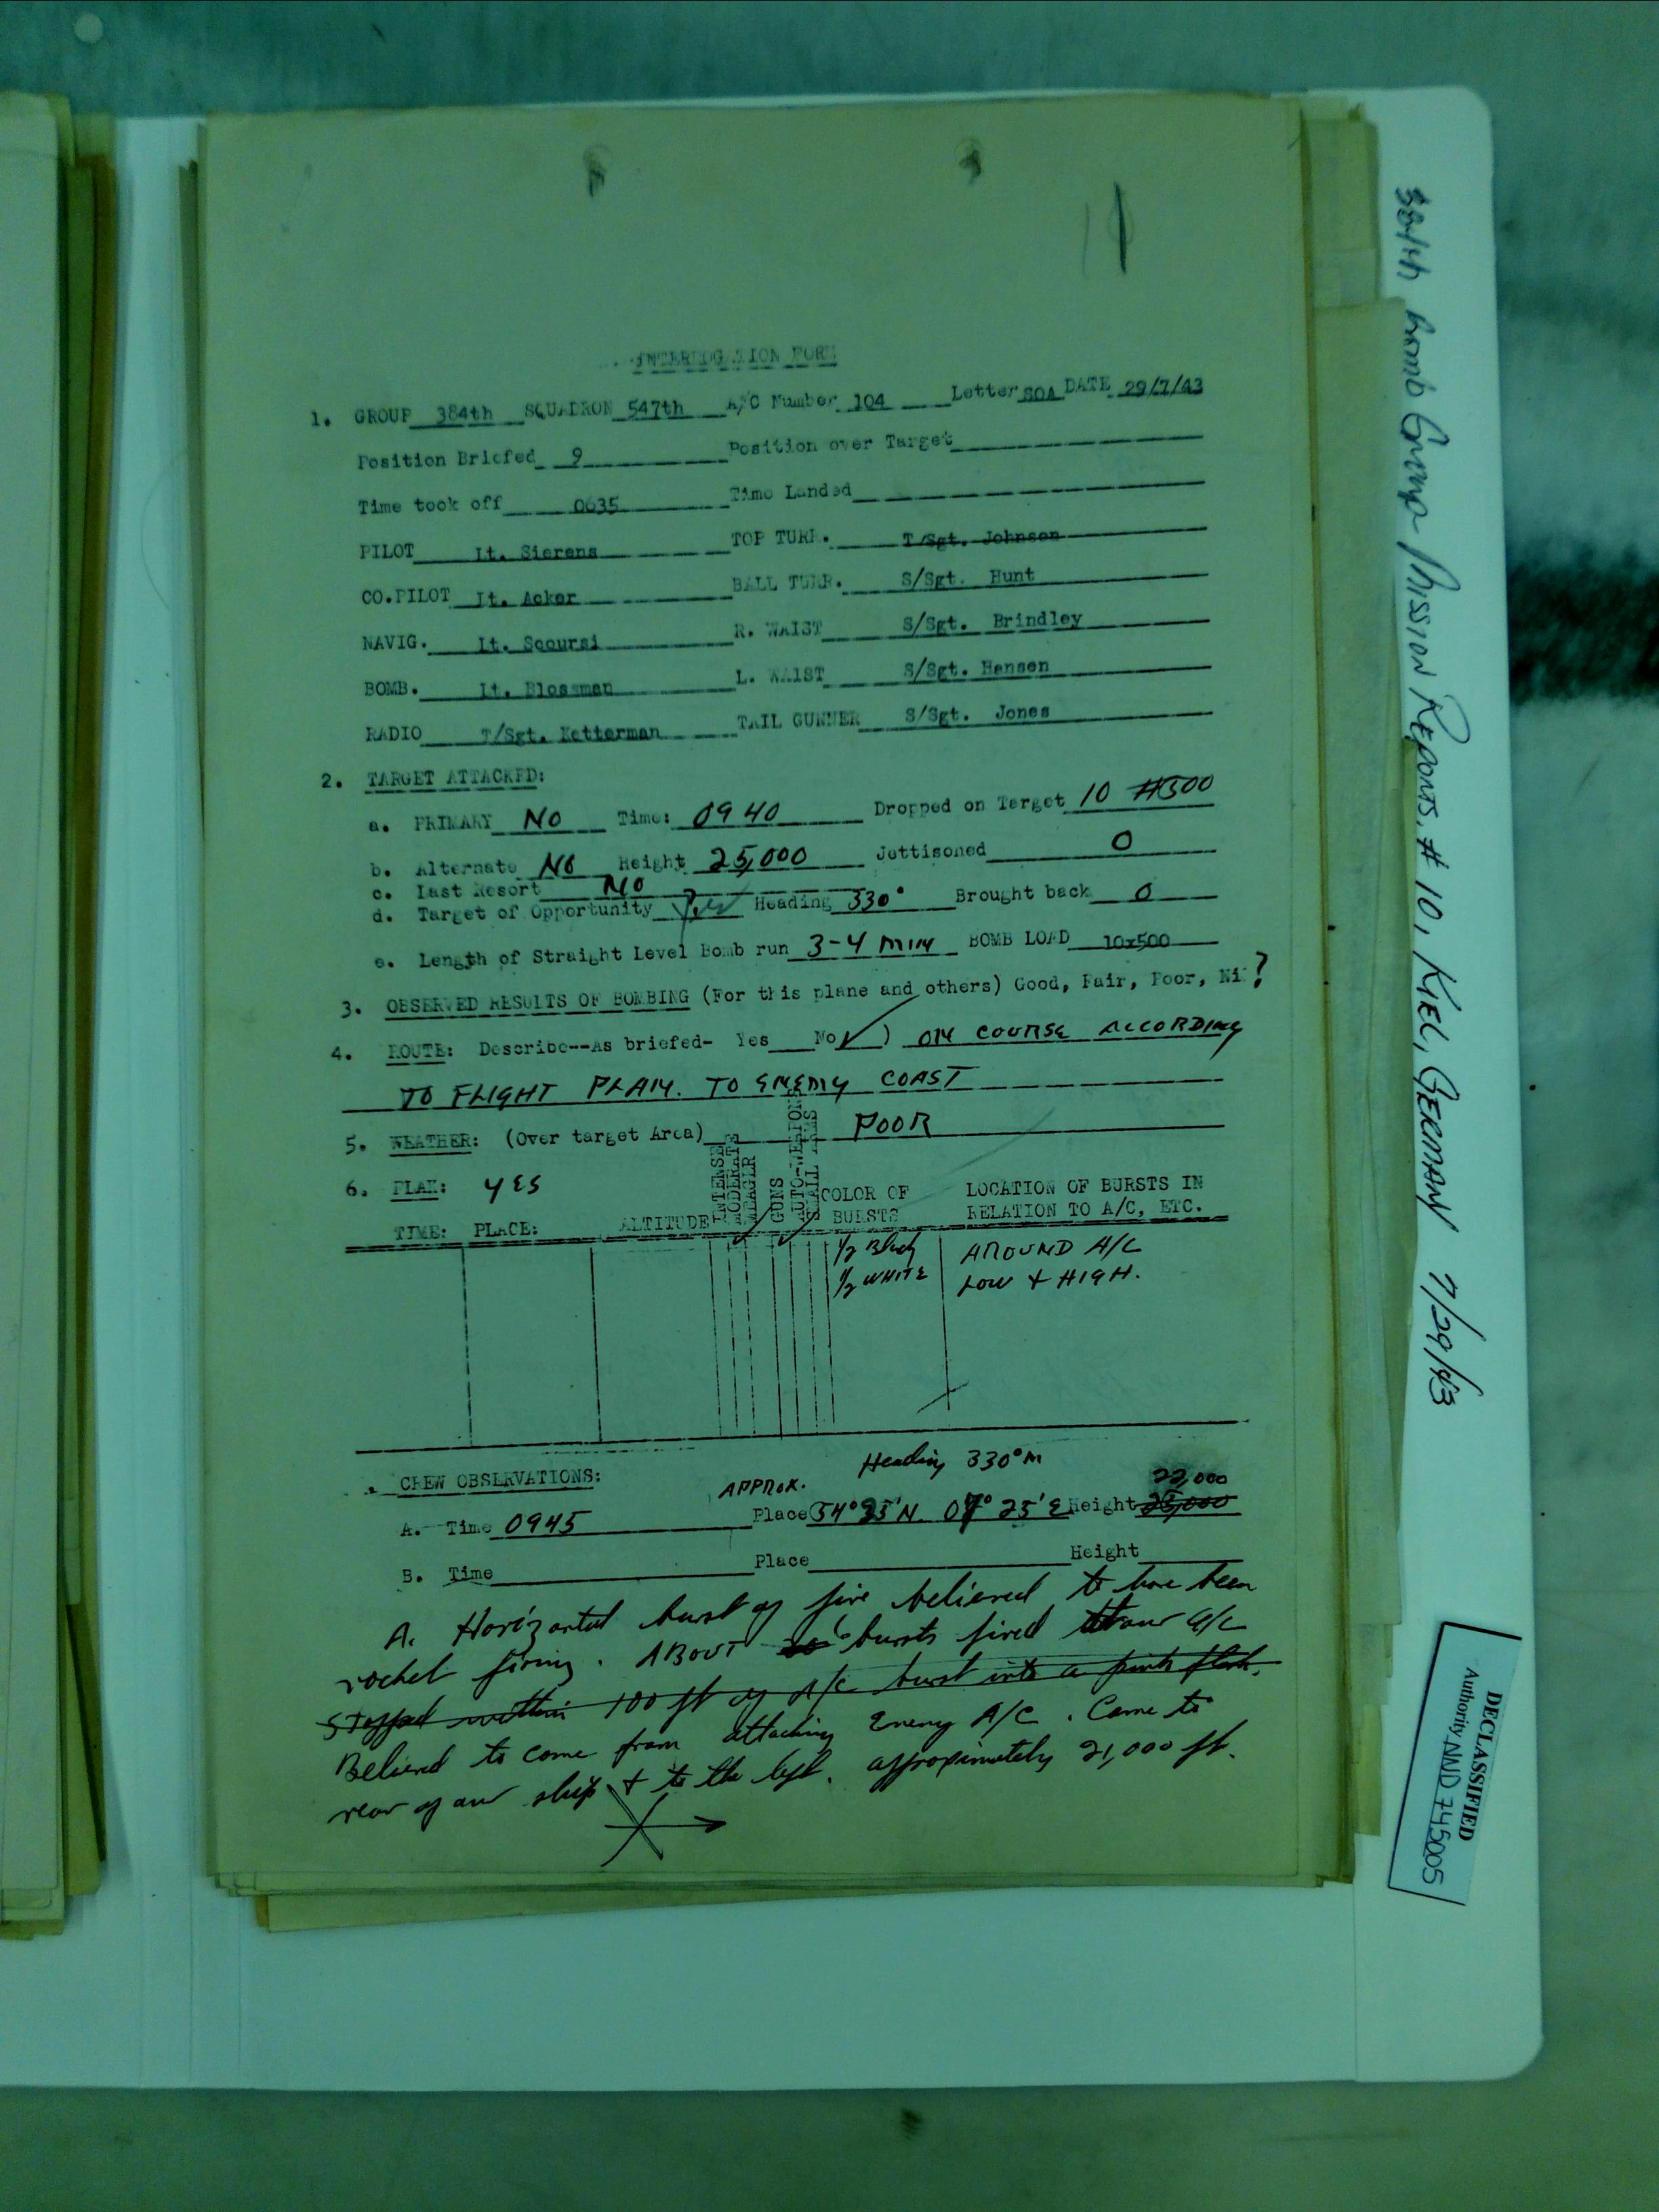 INTERROGATION FORM
1. GROUP 384th SQUADRON 547th A/C Number 104 Letter SOA DATE 29/7/43
Position Briefed 9 Position over Target
Time took off 0635 Time Landed
PILOT Lt. Sierens TOP TURR. T/Sgt. Johnson
CO.PILOT Lt. Acker BALL TURR. S/Sgt. Hunt
NAVIG. Lt. Scoursi R. WAIST S/Sgt. Brindley
BOMB. Lt. Blossman L. WAIST S/Sgt. Hansen
RADIO T/Sgt. Ketterman TAIL GUNNER S/Sgt. Jones
2. TARGET ATTACKED:
a. PRIMARY NO Time: 0940 Dropped on Target 10 #500
b. Alternate NO Height 25,000 Jettisoned 0
c. Last Resort NO
d. Target of Opportunity Yes Heading 330° Brought back 0
e. Length of Straight Level Bomb run 3-4 MIN BOMB LOAD 10x500
3. OBSERVED RESULTS OF BOMBING (For this plane and others) Good, Fair, Poor, Nil ?
4. ROUTE: Describe--As briefed- Yes No ✓) ON COURSE ACCORDING
TO FLIGHT PLAN. TO ENEMY COAST
5. WEATHER: (Over target Area) POOR
6. FLAK: YES
TIME: PLACE: ALTITUDE INTENSE MODERATE MEAGER GUNS AUTO-WEAPONS SMALL ARMS COLOR OF BURSTS LOCATION OF BURSTS IN RELATION TO A/C, ETC.
1/2 Black AROUND A/C
1/2 WHITE LOW + HIGH.
Heading 330° M
CREW OBSERVATIONS: APPROX. 22,000
A. Time 0945 Place 54° 35' N. 07° 25' E Height 25,000
B. Time Place Height
A. Horizontal burst of fire believed to have been
rocket firing. ABOUT 6 bursts fired at our A/C
Stopped within 100 ft of A/C burst into a flash.
Believed to come from attacking Enemy A/C. Came to
rear of our ship + to the left. approximately 21,000 ft.
384th Bomb Group Mission Reports, # 10, KIEL, GERMANY 7/29/43
DECLASSIFIED
Authority NND 745005